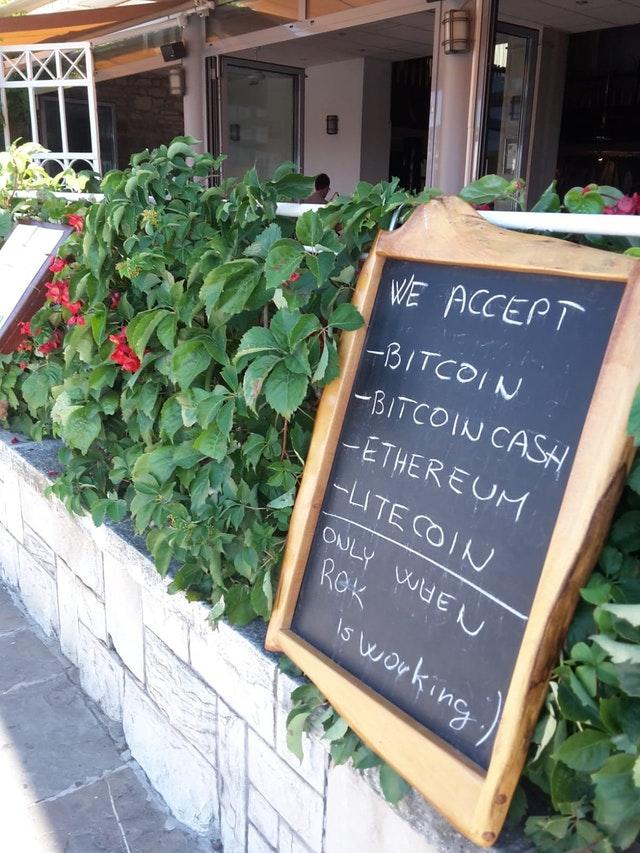 WE ACCEPT
-BITCOIN
-BITCOIN CASH
-ETHEREUM
-LITECOIN
ONLY WHEN
ROK
is working:)